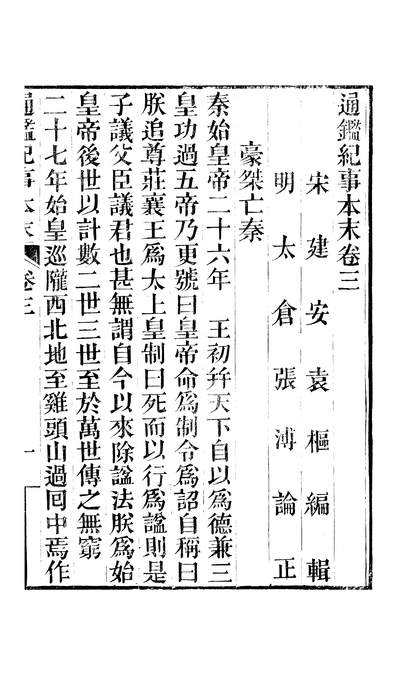 通鑑紀事本末卷三
宋建安袁樞編輯
明太倉張溥論正
豪桀亡秦
秦始皇帝二十六年　王初幷天下自以爲德兼三
皇功過五帝乃更號曰皇帝命爲制令爲詔自稱曰
朕追尊莊襄王爲太上皇制曰死而以行爲謚則是
子議父臣議君也甚無謂自今以來除謚法朕爲始
皇帝後世以計數二世三世至於萬世傳之無窮
二十七年始皇巡隴西北地至雞頭山過回中焉作
通鑑紀事本末　卷三　一